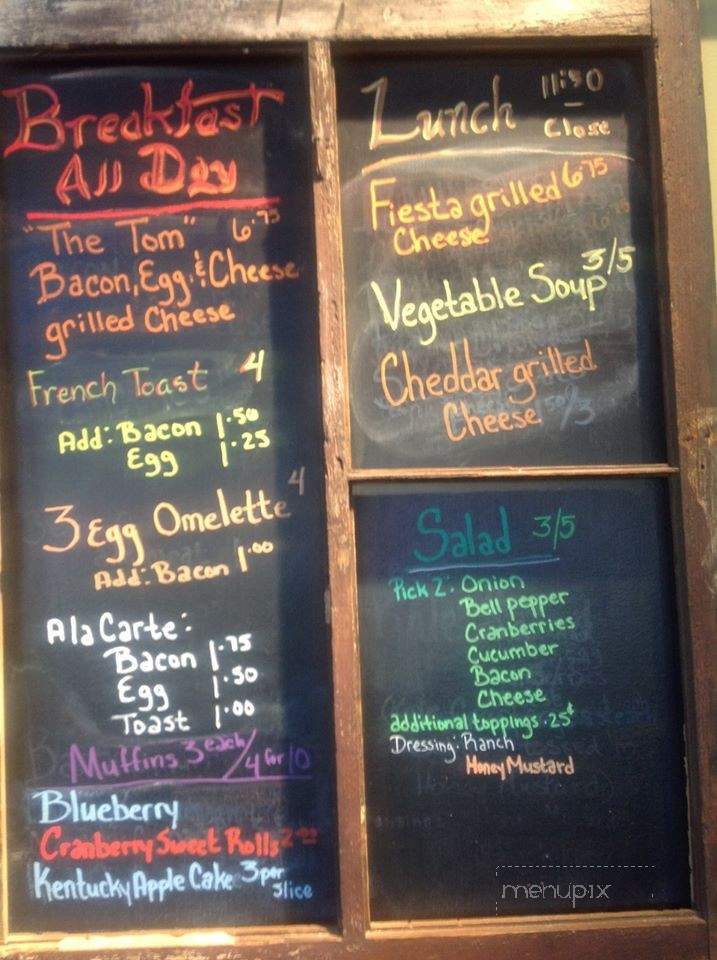 Breakfast
All Day
"The Tom" 6.75
Bacon, Egg, & Cheese
grilled Cheese
French Toast 4
Add: Bacon 1.50
Egg 1.25
3 Egg Omelette 4
Add: Bacon 1.00
A la Carte:
Bacon 1.75
Egg 1.50
Toast 1.00
Muffins 3 each/4 for 10
Blueberry
Cranberry Sweet Rolls 2.00
Kentucky Apple Cake 3 per
slice
Lunch 11:30
–
Close
Fiesta grilled 6.75
Cheese
Vegetable Soup 3/5
Cheddar grilled
Cheese
Salad 3/5
Pick 2: Onion
Bell pepper
Cranberries
Cucumber
Bacon
Cheese
additional toppings .25¢
Dressing: Ranch
Honey Mustard
menupix